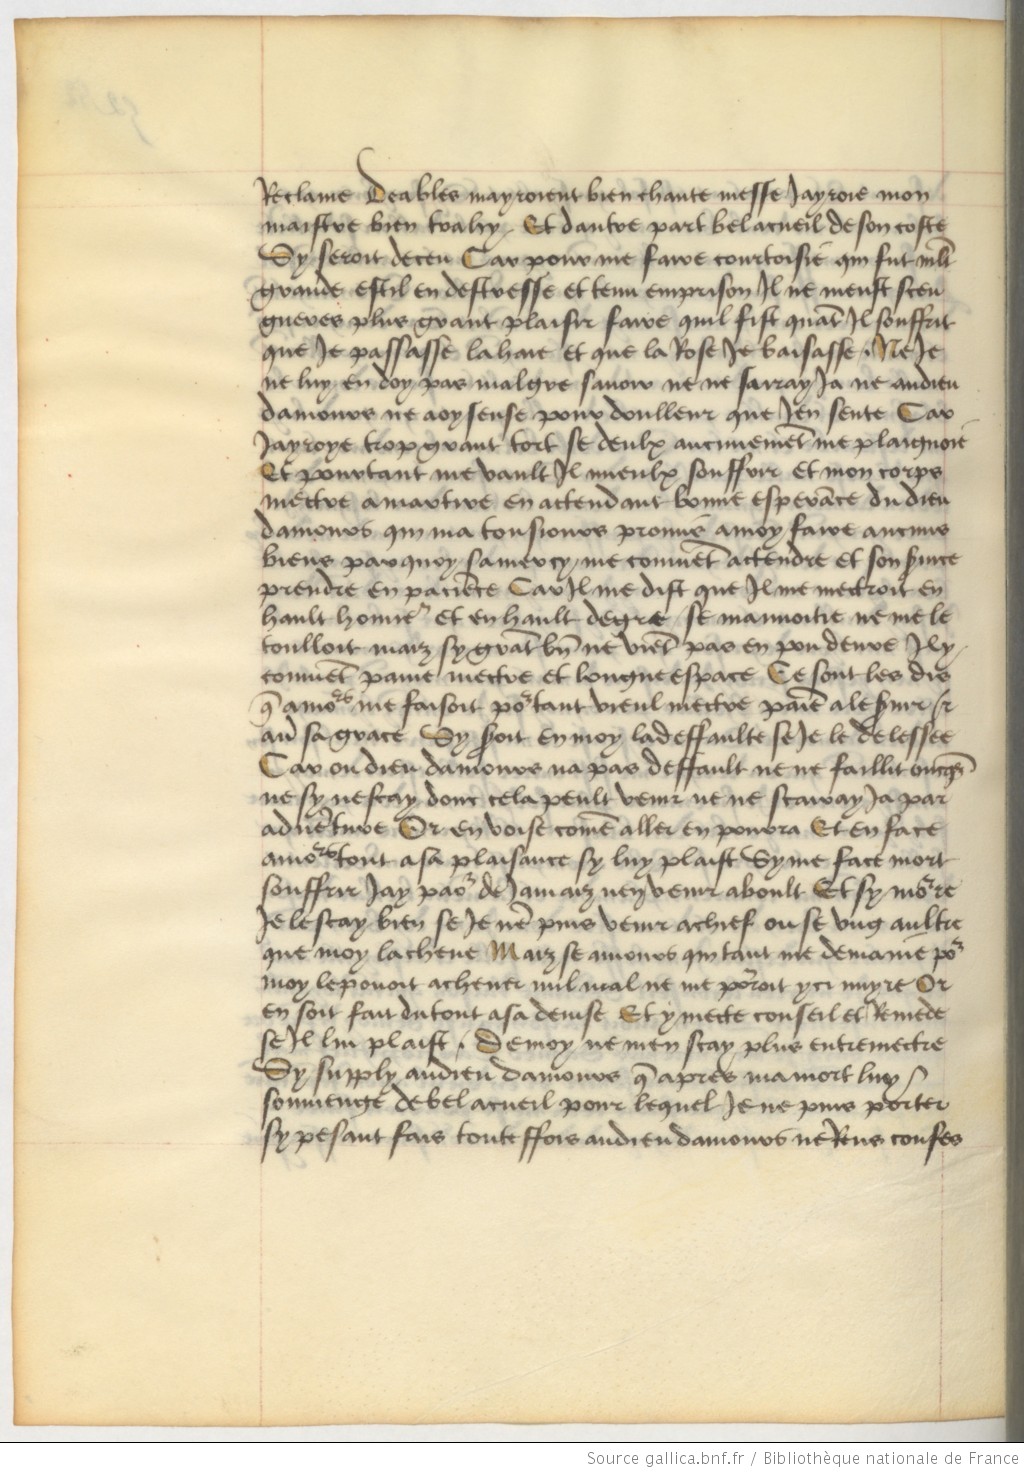 Reclame Deables mayroient bien chante messe Jayroie mon
maistre bien trahy. Et dautre part bel acueil de son coste
Sy seroit deceu Car pour me faire courtoisie qui fut mlt
grande est il en destresse et tenu emprison Il ne meust sceu
gueres plus grant plaisir faire quil fist quāt Il souffrit
que Je passasse la haie et que la Rose Je baisasse. Ne Je
ne luy en doy pas malgre savoir ne ne sarray Ja ne au dieu
damours ne a oyseuse pour doulleur que Jen sente Car
Jayroye trop grant tort se deulx aucunemēt me plaignoie
Et pourtant me vault Il mieulx souffrir et mon corps
mectre a martire en actendant bonne esperāce du dieu
damours qui ma tousiours promis a moy faire aucuns
biens par quoy sa mercy me conuiēt actendre et son
prendre en paciēce Car Il me dist que Il me mectroit en
hault honne et en hault degre se mauuoitie ne me le
toulloit maiz sy grāt bn̄ ne viēt pas en pou deure Il y
conuiēt paine mectre et longue espace Ce sont les dis
q̄ amors me faisoit por tant vieul mectre paīe a le
au sa grace Sy soit en moy la deffaulte se Je le delessee
Car ou dieu damours na pas deffault ne ne faillit oncq̄s
ne sy ne scay donc cela peult venir ne ne scaray Ja par
aduēture Or en voise comē aller en pourra Et en face
amors tout a sa plaisance sy luy plaist Sy me face mort
souffrir Jay paor de Jamaiz nen venir a boult Et sy more
Je le scay bien se Je nē puis venir a chief ou se vng aultre
que moy lacheue Maiz se amours qui tant me demaine por
moy le povoit achever nul mal ne me poroit yci nuyre Or
en soit fait du tout a sa deuise Et y mecte conseil et Remede
se Il lui plaist. De moy ne men scay plus entremectre
Sy supply au dieu damours q̄ apres ma mort luy
souuienge de bel acueil pour lequel Je ne puis porter
sy pesant fais toute ffois au dieu damours ne Rens confes